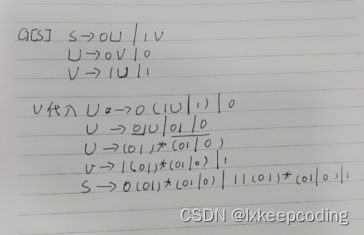 G[S] S→0U|1V
U→0V|0
V→1U|1
V代入 U→0(1U|1)|0
U→01U|01|0
U→(01)*(01|0)
V→1(01)*(01|0)|1
S→0(01)*(01|0)|11(01)*(01|0)|1
CSDN @lxkeepcoding